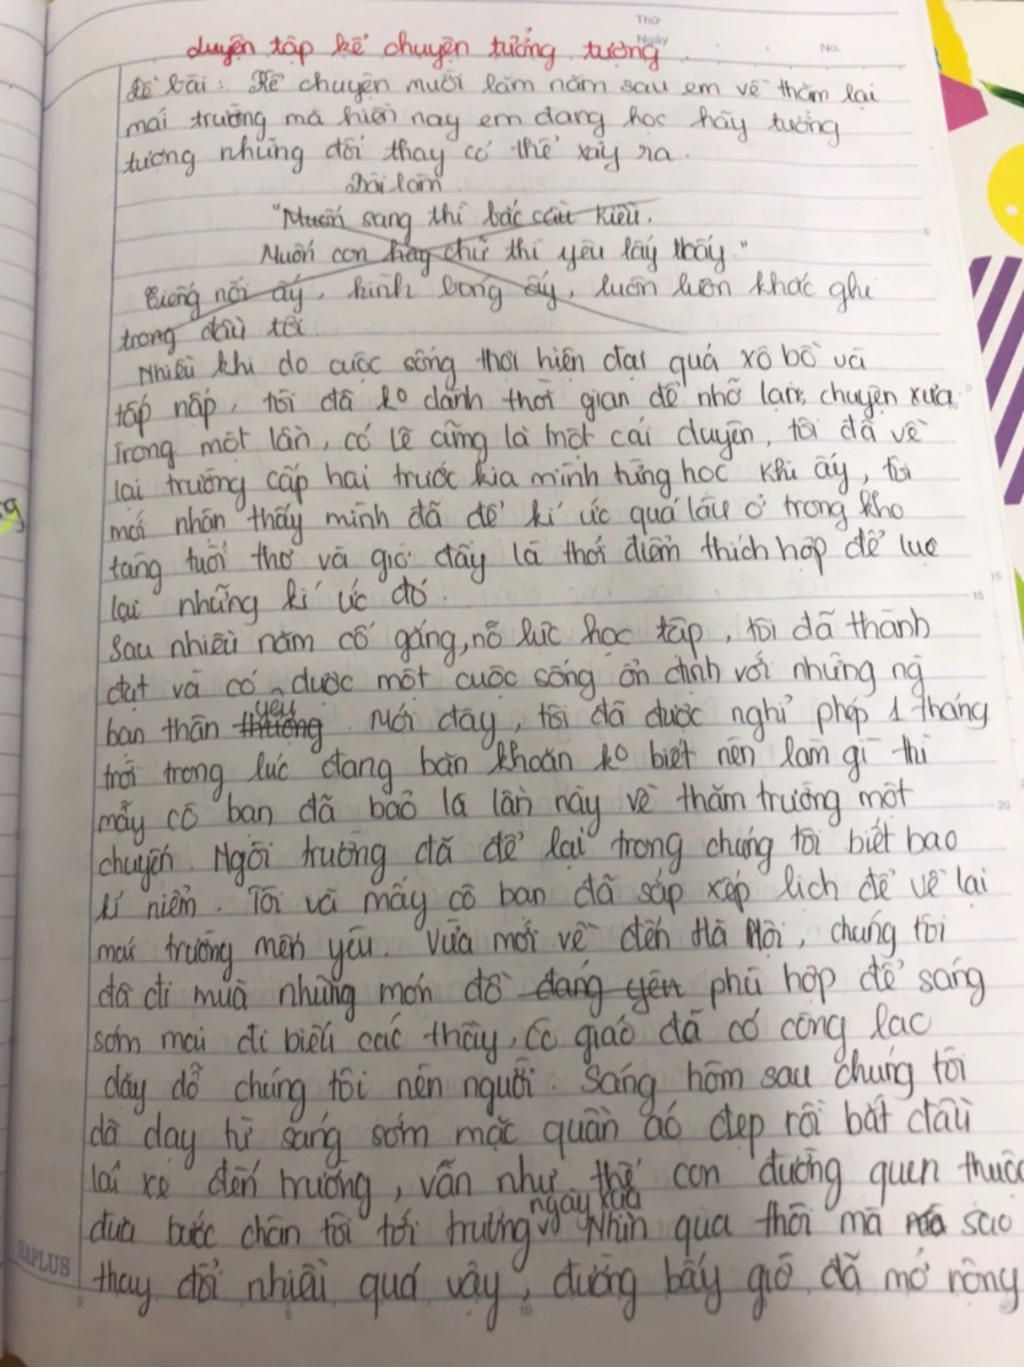 Thứ
Ngày
No.
Luyện tập kể chuyện tưởng tượng
Đề bài: Kể chuyện mười lăm năm sau em về thăm lại
mái trường mà hiện nay em đang học hãy tưởng
tượng những đổi thay có thể xảy ra.
Bài làm
"Muốn sang thì bắc cầu kiều.
Muốn con hay chữ thì yêu lấy thầy."
Giọng nói ấy, hình bóng ấy, luôn luôn khắc ghi
trong đầu tôi.
Nhiều khi do cuộc sống thời hiện đại quá xô bồ và
tấp nập, tôi đã ko dành thời gian để nhớ lại chuyện xưa
Trong một lần, có lẽ cũng là một cái duyên, tôi đã về
lại trường cấp hai trước kia mình từng học Khi ấy, tôi
mới nhận thấy mình đã để kí ức quá lâu ở trong kho
tàng tuổi thơ và giờ đây là thời điểm thích hợp để lục
lại những kí ức đó.
Sau nhiều năm cố gắng, nỗ lực học tập, tôi đã thành
đạt và có được một cuộc sống ổn định với những ng
bạn thân thương yêu. Mới đây, tôi đã được nghỉ phép 1 tháng
trời trong lúc đang băn khoăn ko biết nên làm gì thì
mấy cô bạn đã bảo là lần này về thăm trường một
chuyến. Ngôi trường đã để lại trong chúng tôi biết bao
kỉ niệm. Tôi và mấy cô bạn đã sắp xếp lịch để về lại
mái trường mến yêu. Vừa mới về đến Hà Nội, chúng tôi
đã đi mua những món đồ đang yên phù hợp để sáng
sớm mai đi biếu các thầy, cô giáo đã có công lao
dạy dỗ chúng tôi nên người. Sáng hôm sau chúng tôi
đã dạy từ sáng sớm mặc quần áo đẹp rồi bắt đầu
lái xe đến trường, vẫn như thế con đường quen thuộc
đưa bước chân tôi tới trường ngày xưa Nhìn qua thôi mà sao
thay đổi nhiều quá vậy, đường bấy giờ đã mở rộng
HAPLUS